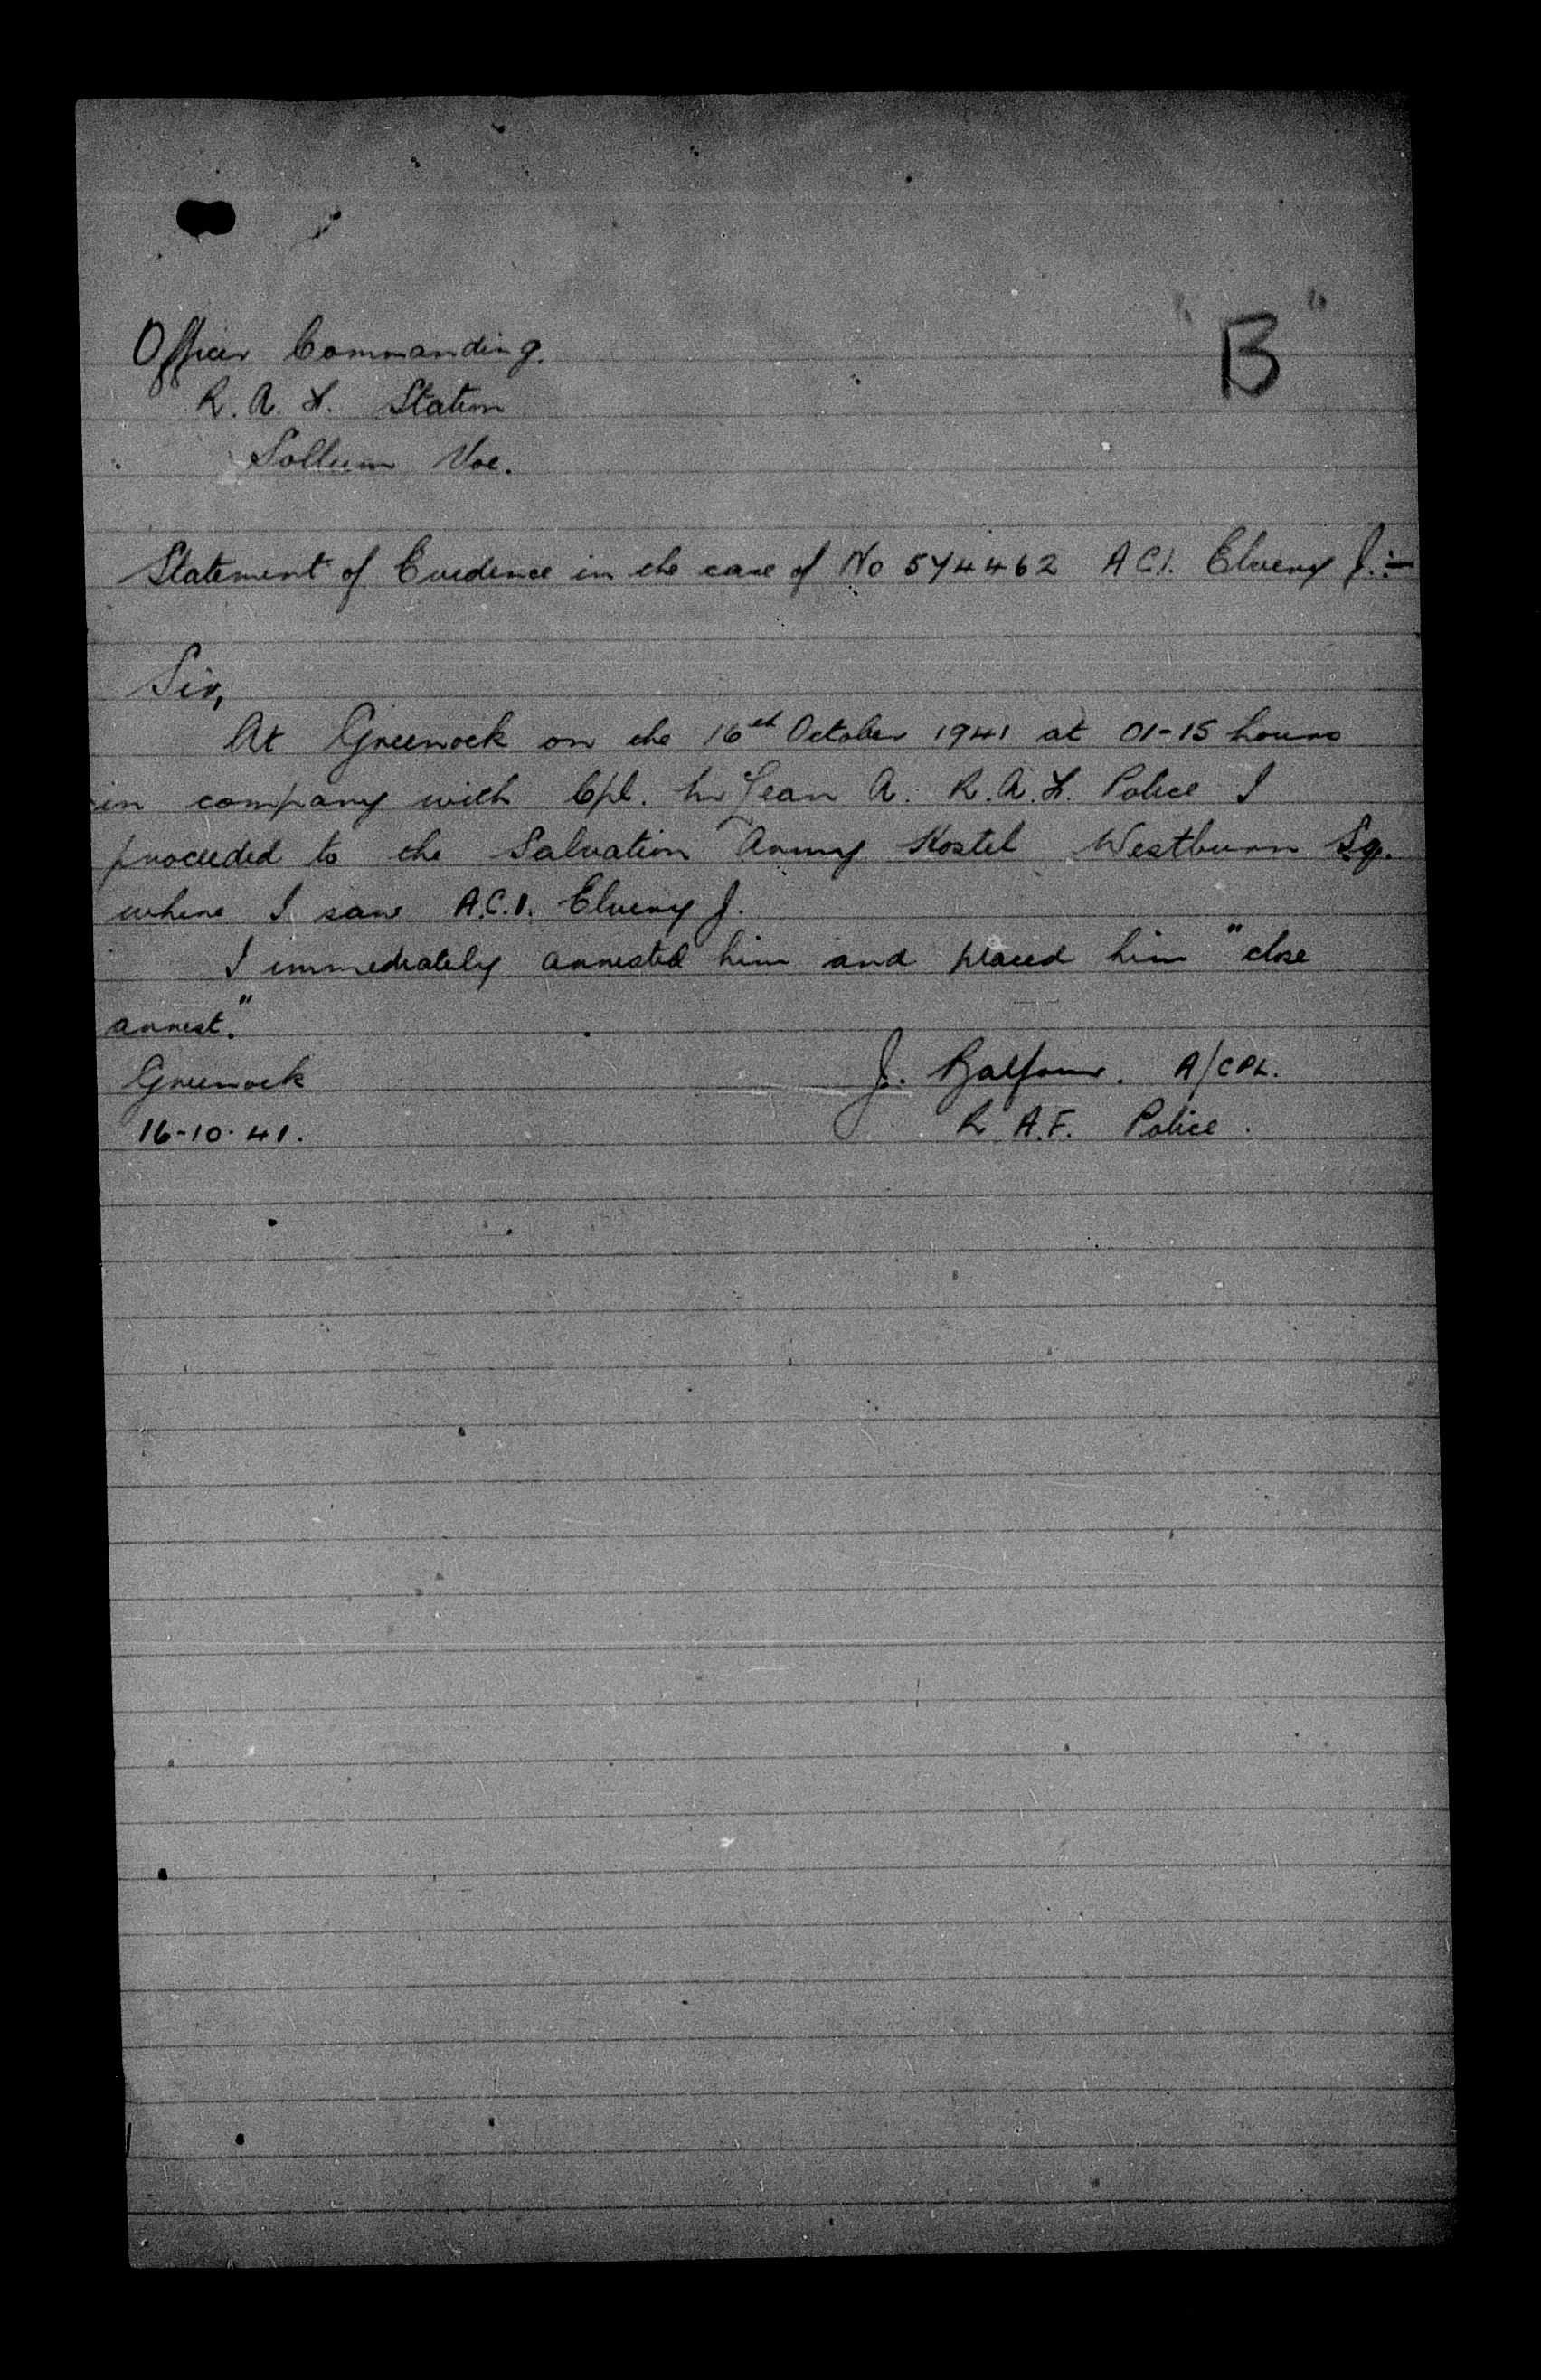 "B"
Officer Commanding.
R.A.F. Station
Sollum Voe.
Statement of Evidence in the case of No 574462 AC1. Elveny J.:-
Sir,
At Greenock on the 16th October 1941 at 01-15 hours
in company with Cpl. McLean A. R.A.F. Police I
proceeded to the Salvation Army Hostel Westburn Sq.
where I saw A.C.1. Elveny J.
I immediately arrested him and placed him "close
arrest."
Greenock
J. Balfour. A/CPL.
16-10-41.
R.A.F. Police.